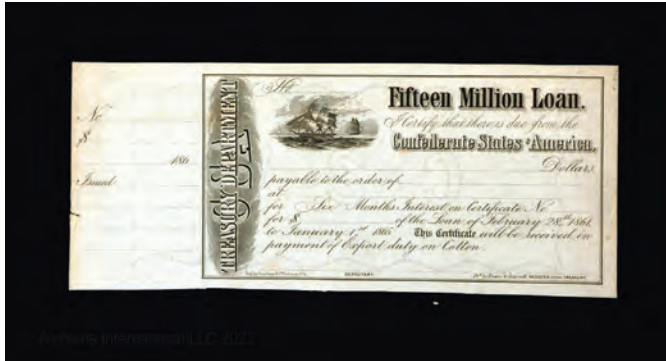 No
$
186
Issued
TREASURY DEPARTMENT
No
Fifteen Million Loan.
I Certify that there is due from the
Confederate States of America,
Dollars
payable to the order of
at
for Six Months Interest on Certificate No
for $ of the Loan of February 28th 1861,
to January 1st 186 This Certificate will be received in
payment of Export duty on Cotton.
SECRETARY.
REGISTER OF THE TREASURY.
Archives International LLC 2022